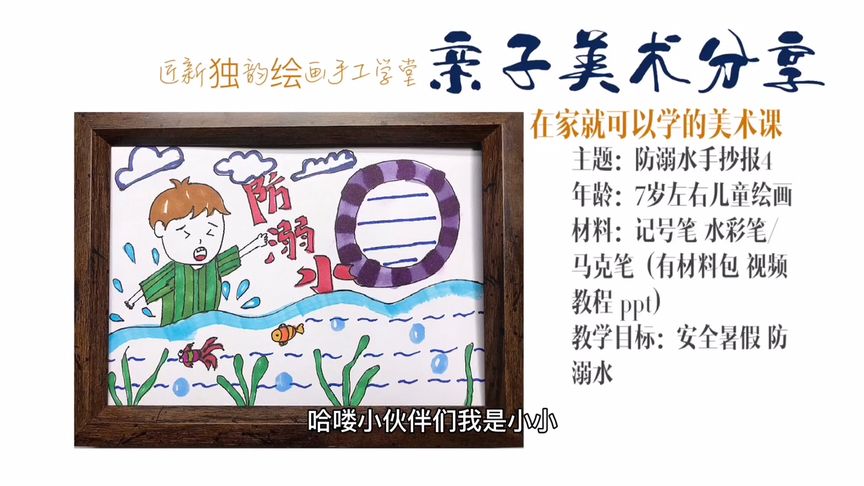 匠新独韵绘画手工学堂
亲子美术分享
在家就可以学的美术课
主题：防溺水手抄报4
年龄：7岁左右儿童绘画
材料：记号笔 水彩笔/
马克笔（有材料包 视频
教程 ppt）
教学目标：安全暑假 防
溺水
防
溺
水
哈喽小伙伴们我是小小